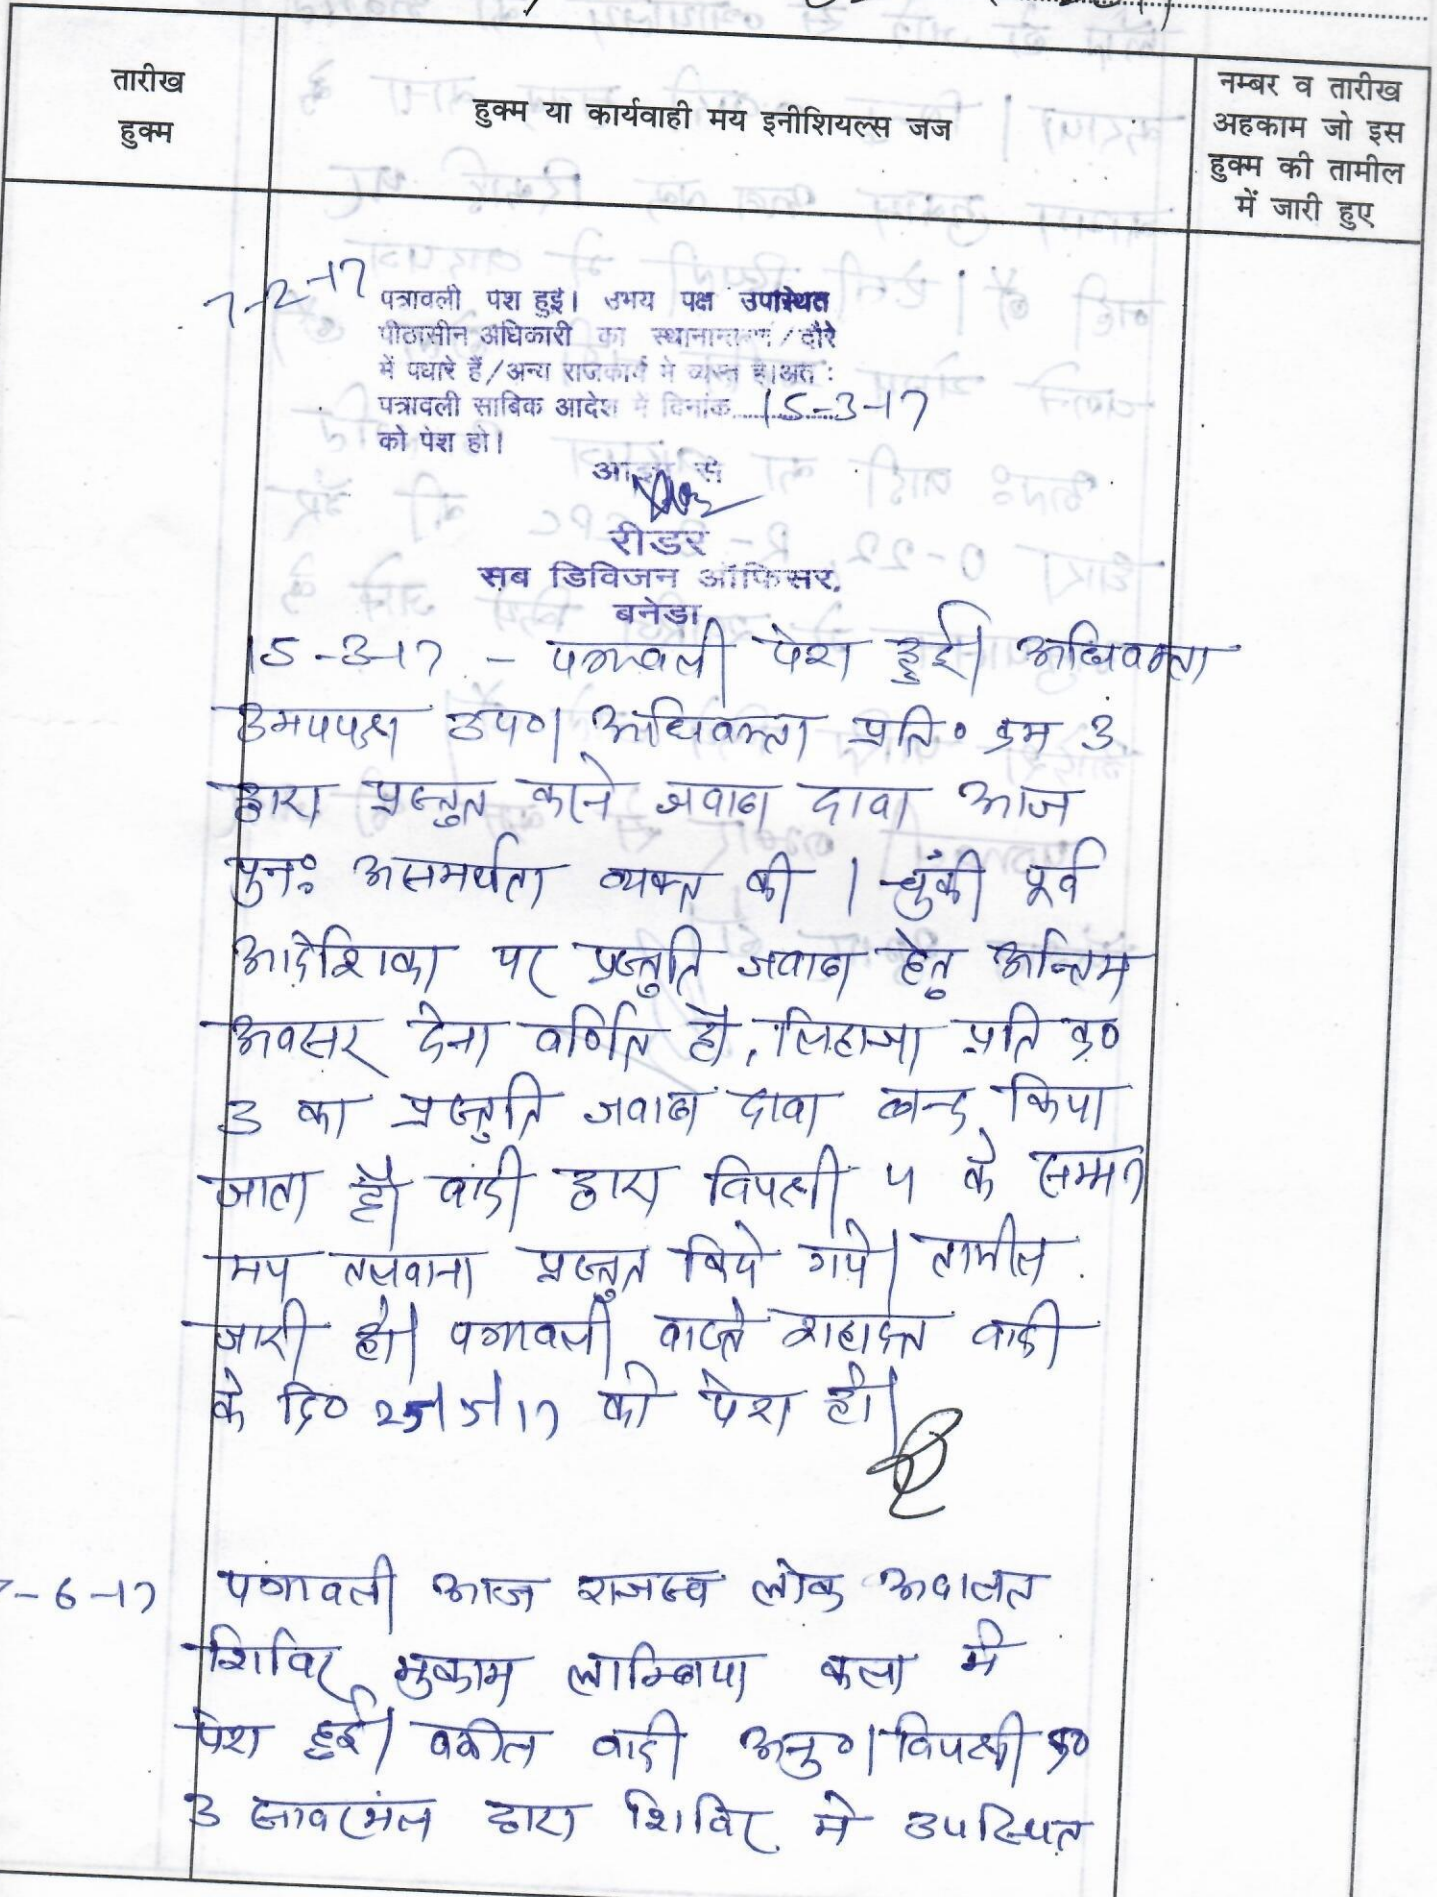 तारीख
हुक्म
हुक्म या कार्यवाही मय इनीशियल्स जज
नम्बर व तारीख
अहकाम जो इस
हुक्म की तामील
में जारी हुए
7-2-17
पत्रावली पेश हुई। उभय पक्ष उपस्थित
पीठासीन अधिकारी का स्थानान्तरण/दौरे
में पधारे हैं/अन्य राजकार्य मे व्यस्त है।अत:
पत्रावली साबिक आदेश मे दिनांक 15-3-17
को पेश हो।
आज्ञा से
रीडर
सब डिविजन ऑफिसर,
बनेडा
15-3-17 - पत्रावली पेश हुई। अधिवक्ता
उभयपक्ष उप०। अधिवक्ता प्रति० क्रम 3
द्वारा प्रस्तुत करने जवाब दावा आज
पुनः असमर्थता व्यक्त की । चुँकी पूर्व
आदेशिका पर प्रस्तुति जवाब हेतु अन्तिम
अवसर देना वर्णित है, लिहाजा प्रति क्र०
3 का प्रस्तुति जवाब दावा बन्द किया
जाता है। वादी द्वारा विपक्षी 4 के सम्मन
मय तलवाना प्रस्तुत किये गये। तामील
जारी हो। पत्रावली वास्ते शहादत वादी
के दि० 25/5/17 को पेश हो।
-6-17 पत्रावली आज राजस्व लोक अदालत
शिविर मुकाम लाम्बिया कला मे
पेश हुई। वकील वादी अनु०। विपक्षी क्र०
3 द्वारा शिविर मे उपस्थित